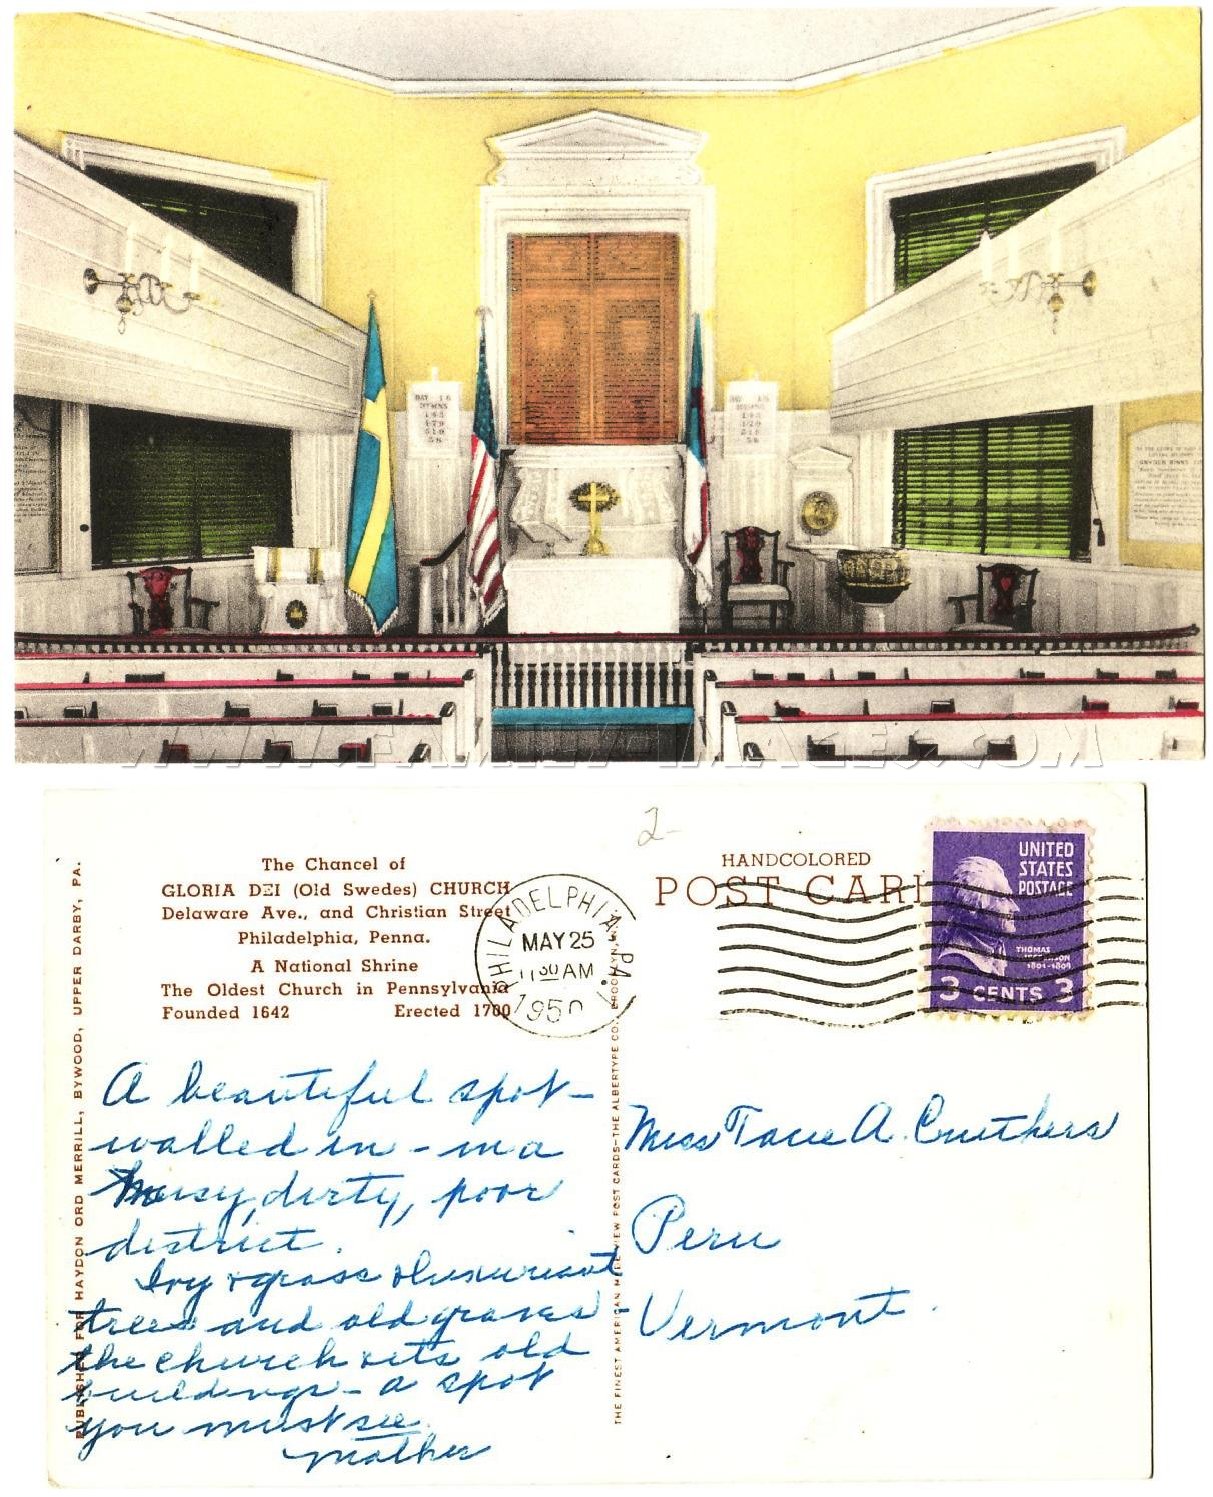 HYMNS
WWW.FAMILY-IMAGES.COM
2-
The Chancel of
GLORIA DEI (Old Swedes) CHURCH
Delaware Ave., and Christian Street
Philadelphia, Penna.
A National Shrine
The Oldest Church in Pennsylvania
Founded 1642 Erected 1700
PHILADELPHIA, PA.
MAY 25
11 30 AM
1950
HANDCOLORED
POST CARD
UNITED
STATES
POSTAGE
THOMAS
JEFFERSON
1801-1809
3 CENTS 3
PUBLISHED FOR HAYDON ORD MERRILL, BYWOOD, UPPER DARBY, PA.
A beautiful spot -
walled in - in a
noisy, dirty, poor
district.
Ivy & grass & luxuriant
trees and old graves -
the church & its old
buildings - a spot
you must see.
Mother
THE FINEST AMERICAN MADE VIEW POST CARDS-THE ALBERTYPE CO., BROOKLYN, N.Y.
Miss A. Cruthers
Peru
Vermont.